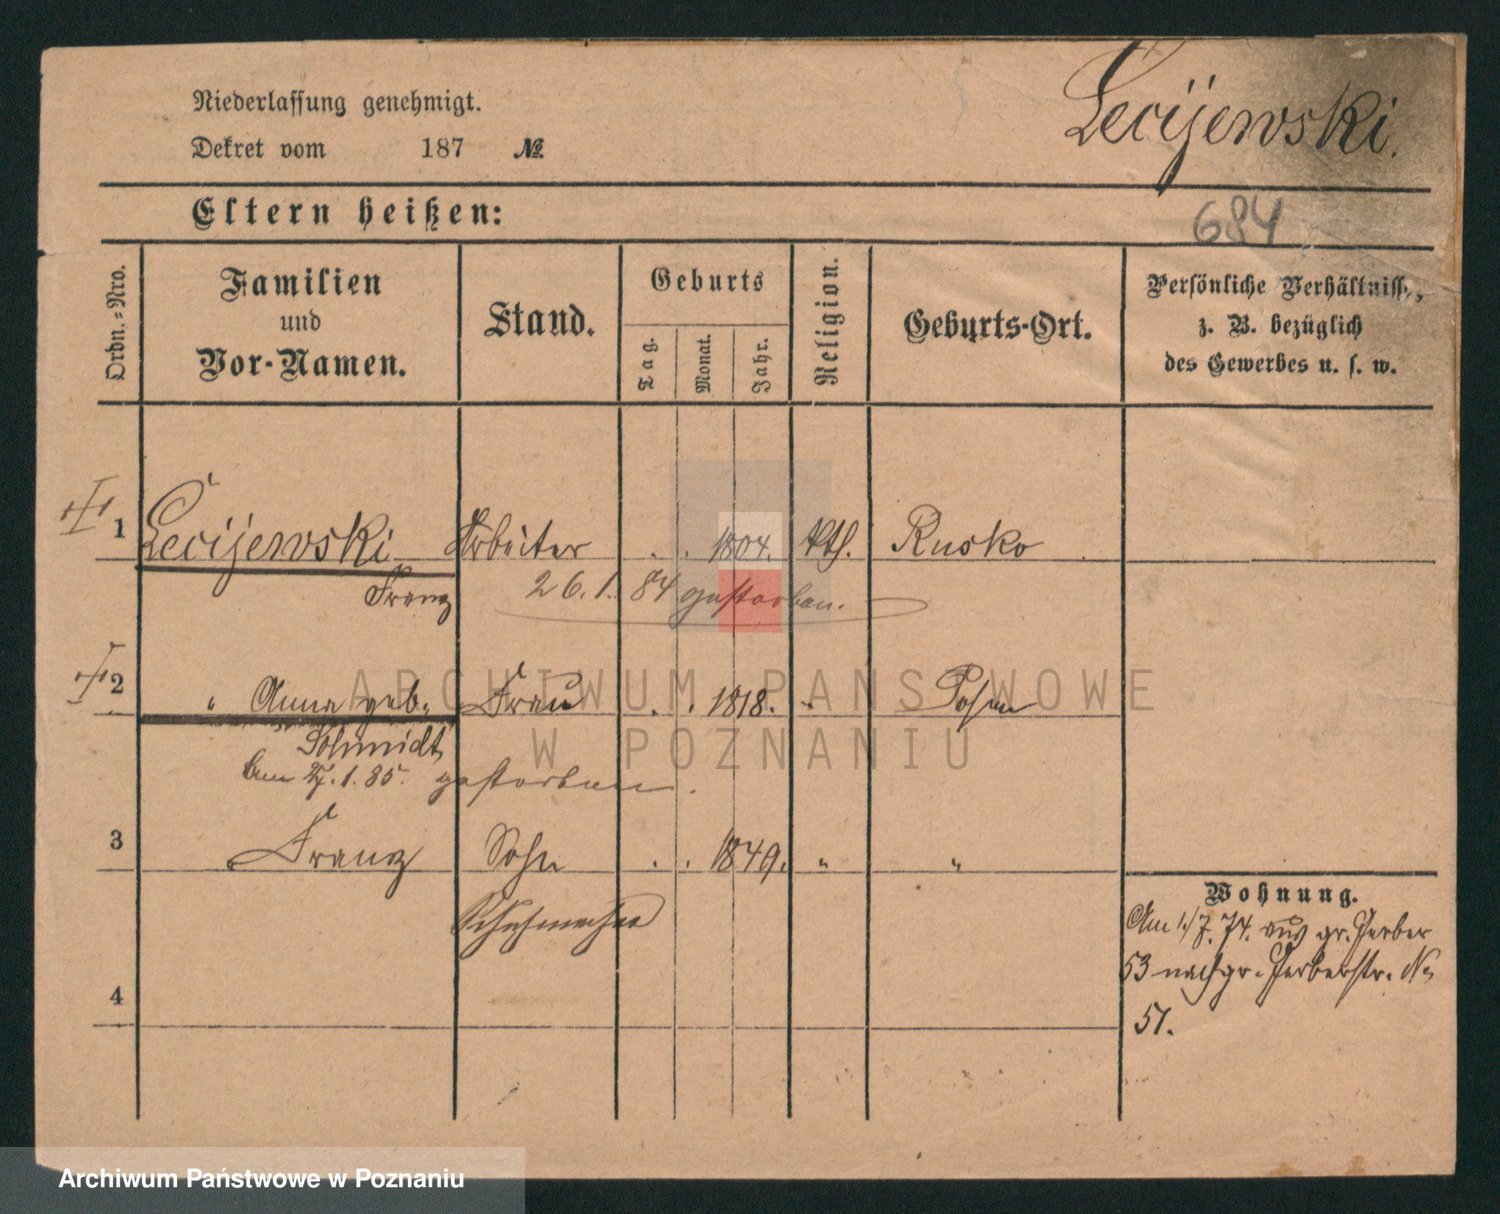 Lecijewski.
Niederlassung genehmigt.
Dekret vom 187 №
684
Eltern heißen:
Ordn.=Nro.
Familien
und
Vor-Namen.
Stand.
Geburts
Tag.
Monat.
Jahr.
Religion.
Geburts-Ort.
Persönliche Verhältnisse,
z. B. bezüglich
des Gewerbes u. s. w.
1 Lecijewski Arbeiter . . 1804. kth. Rusko
Franz 26.1.84 gestorben.
2 " Anna geb. Frau . . 1818. " Posen
Schmidt
am 27.1.85. gestorben.
3 Franz Sohn . . 1849. " "
Schuhmacher
4
Wohnung.
Am 1./7. 74. aus gr. Gerber
53 nach gr. Gerberstr. No
51.
ARCHIWUM PAŃSTWOWE
W POZNANIU
Archiwum Państwowe w Poznaniu